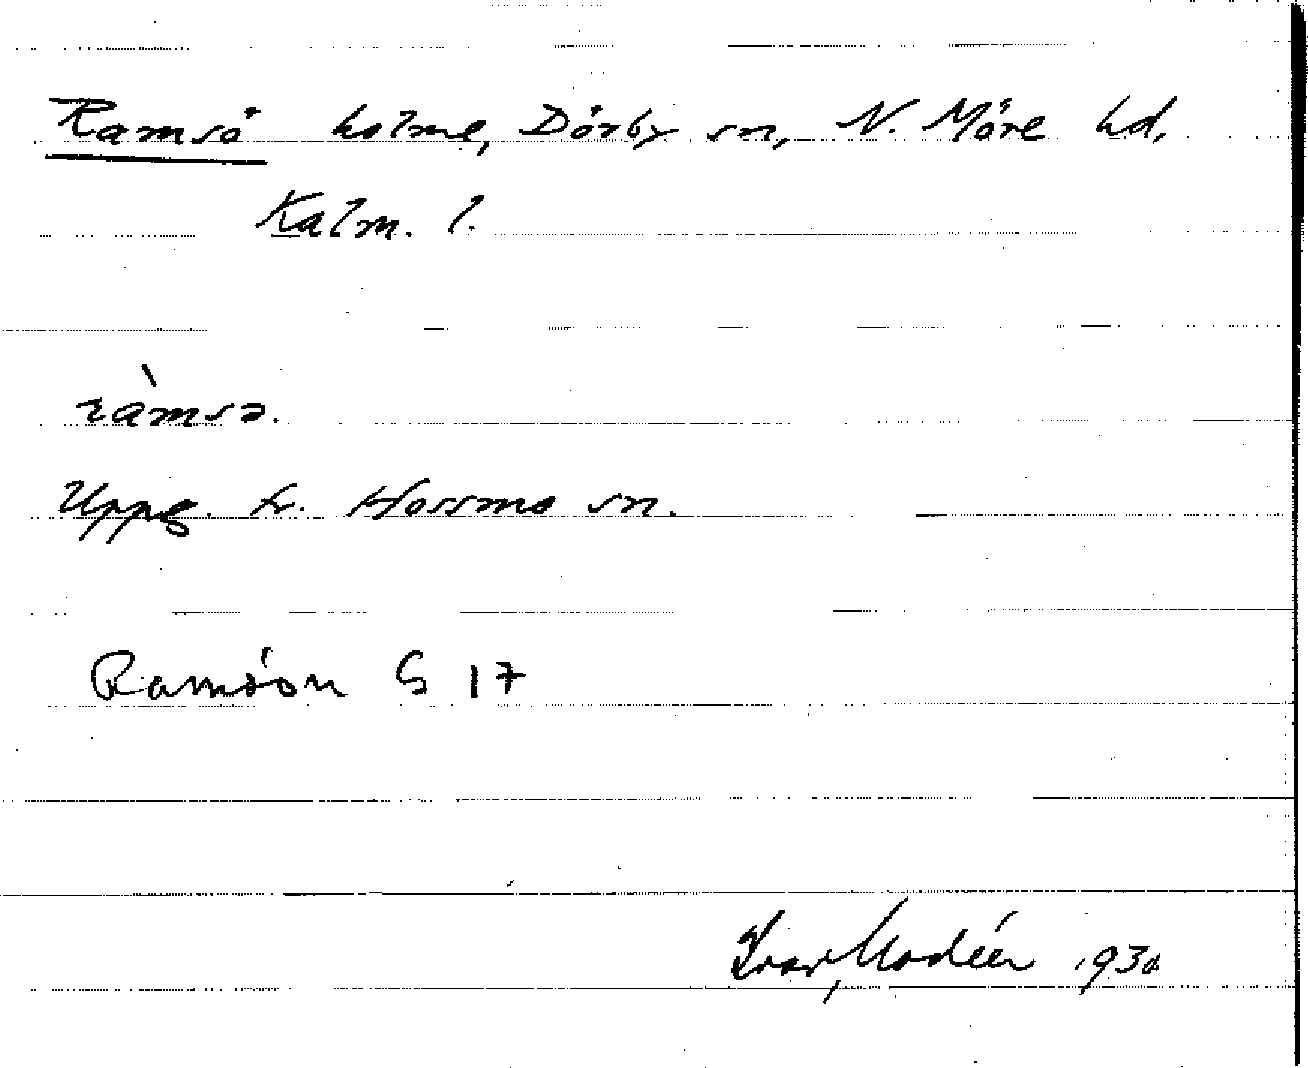 Ramsö holme, Dörby sn, N. Möre hd,
Kalm. l.
ràmsə.
Uppg. fr. Hossmo sn.
Ramsön G 17
Ivar Modéer 1930